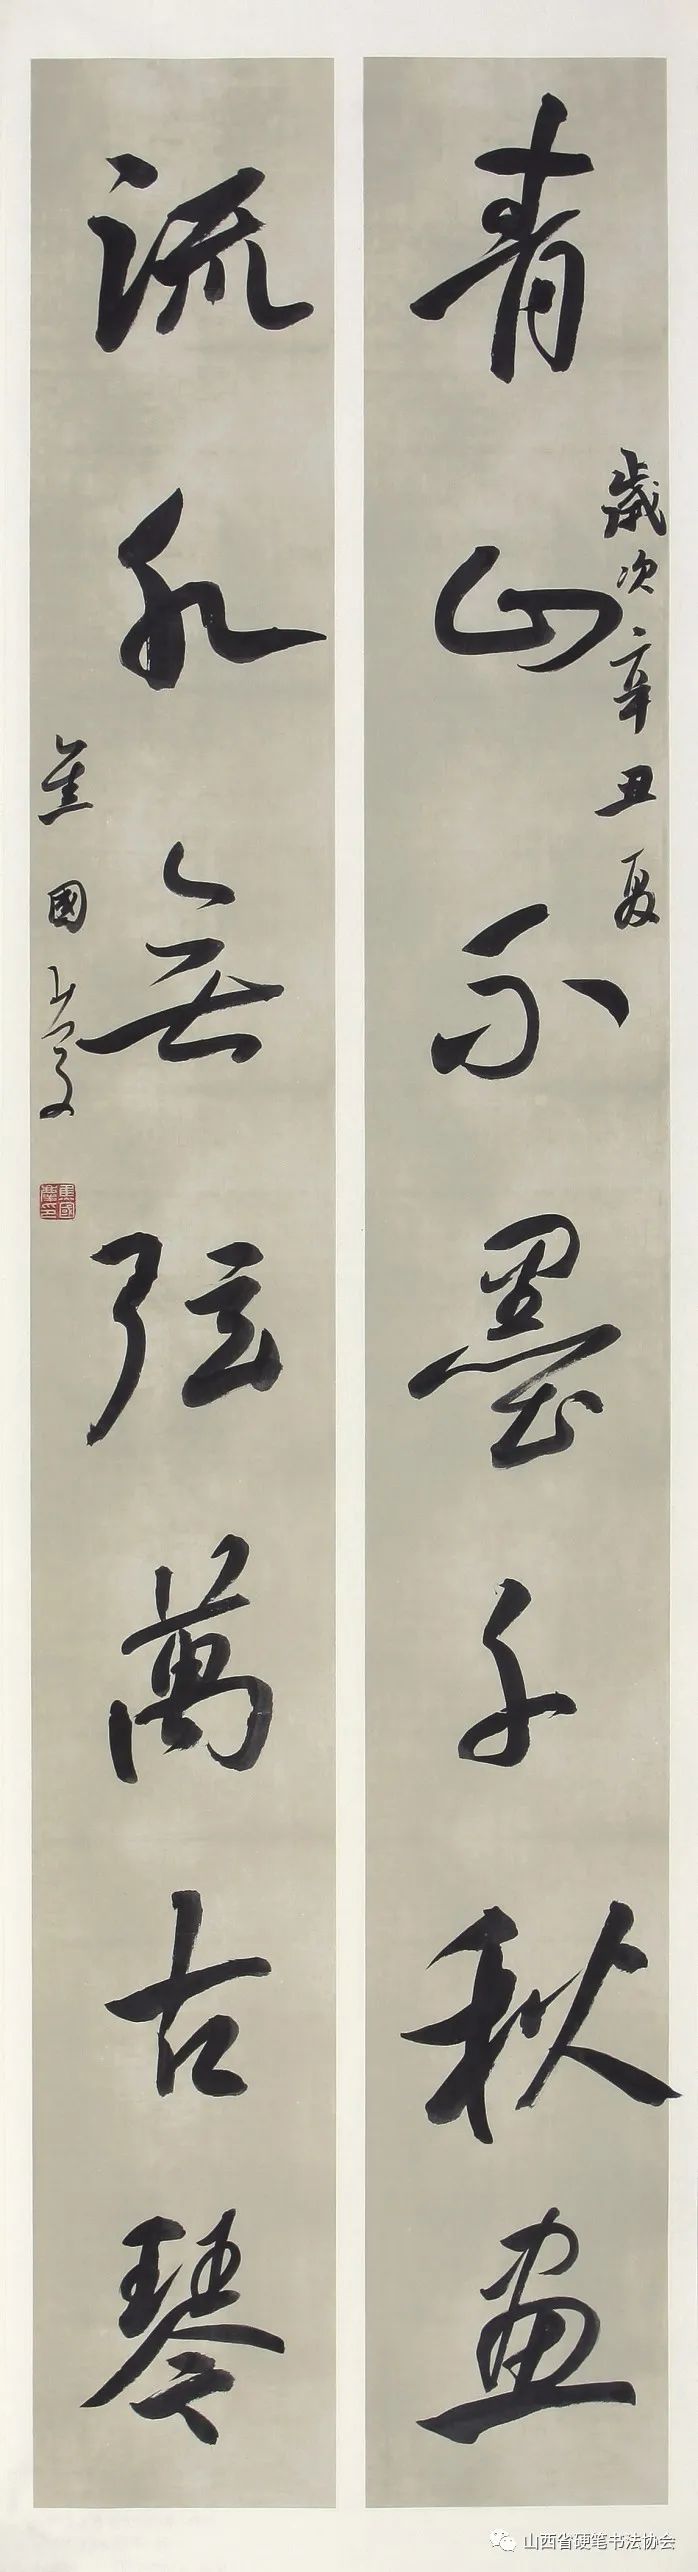 青山不墨千秋畫
歲次辛丑夏
流水無弦萬古琴
焦國慶
焦國慶印
山西省硬笔书法协会